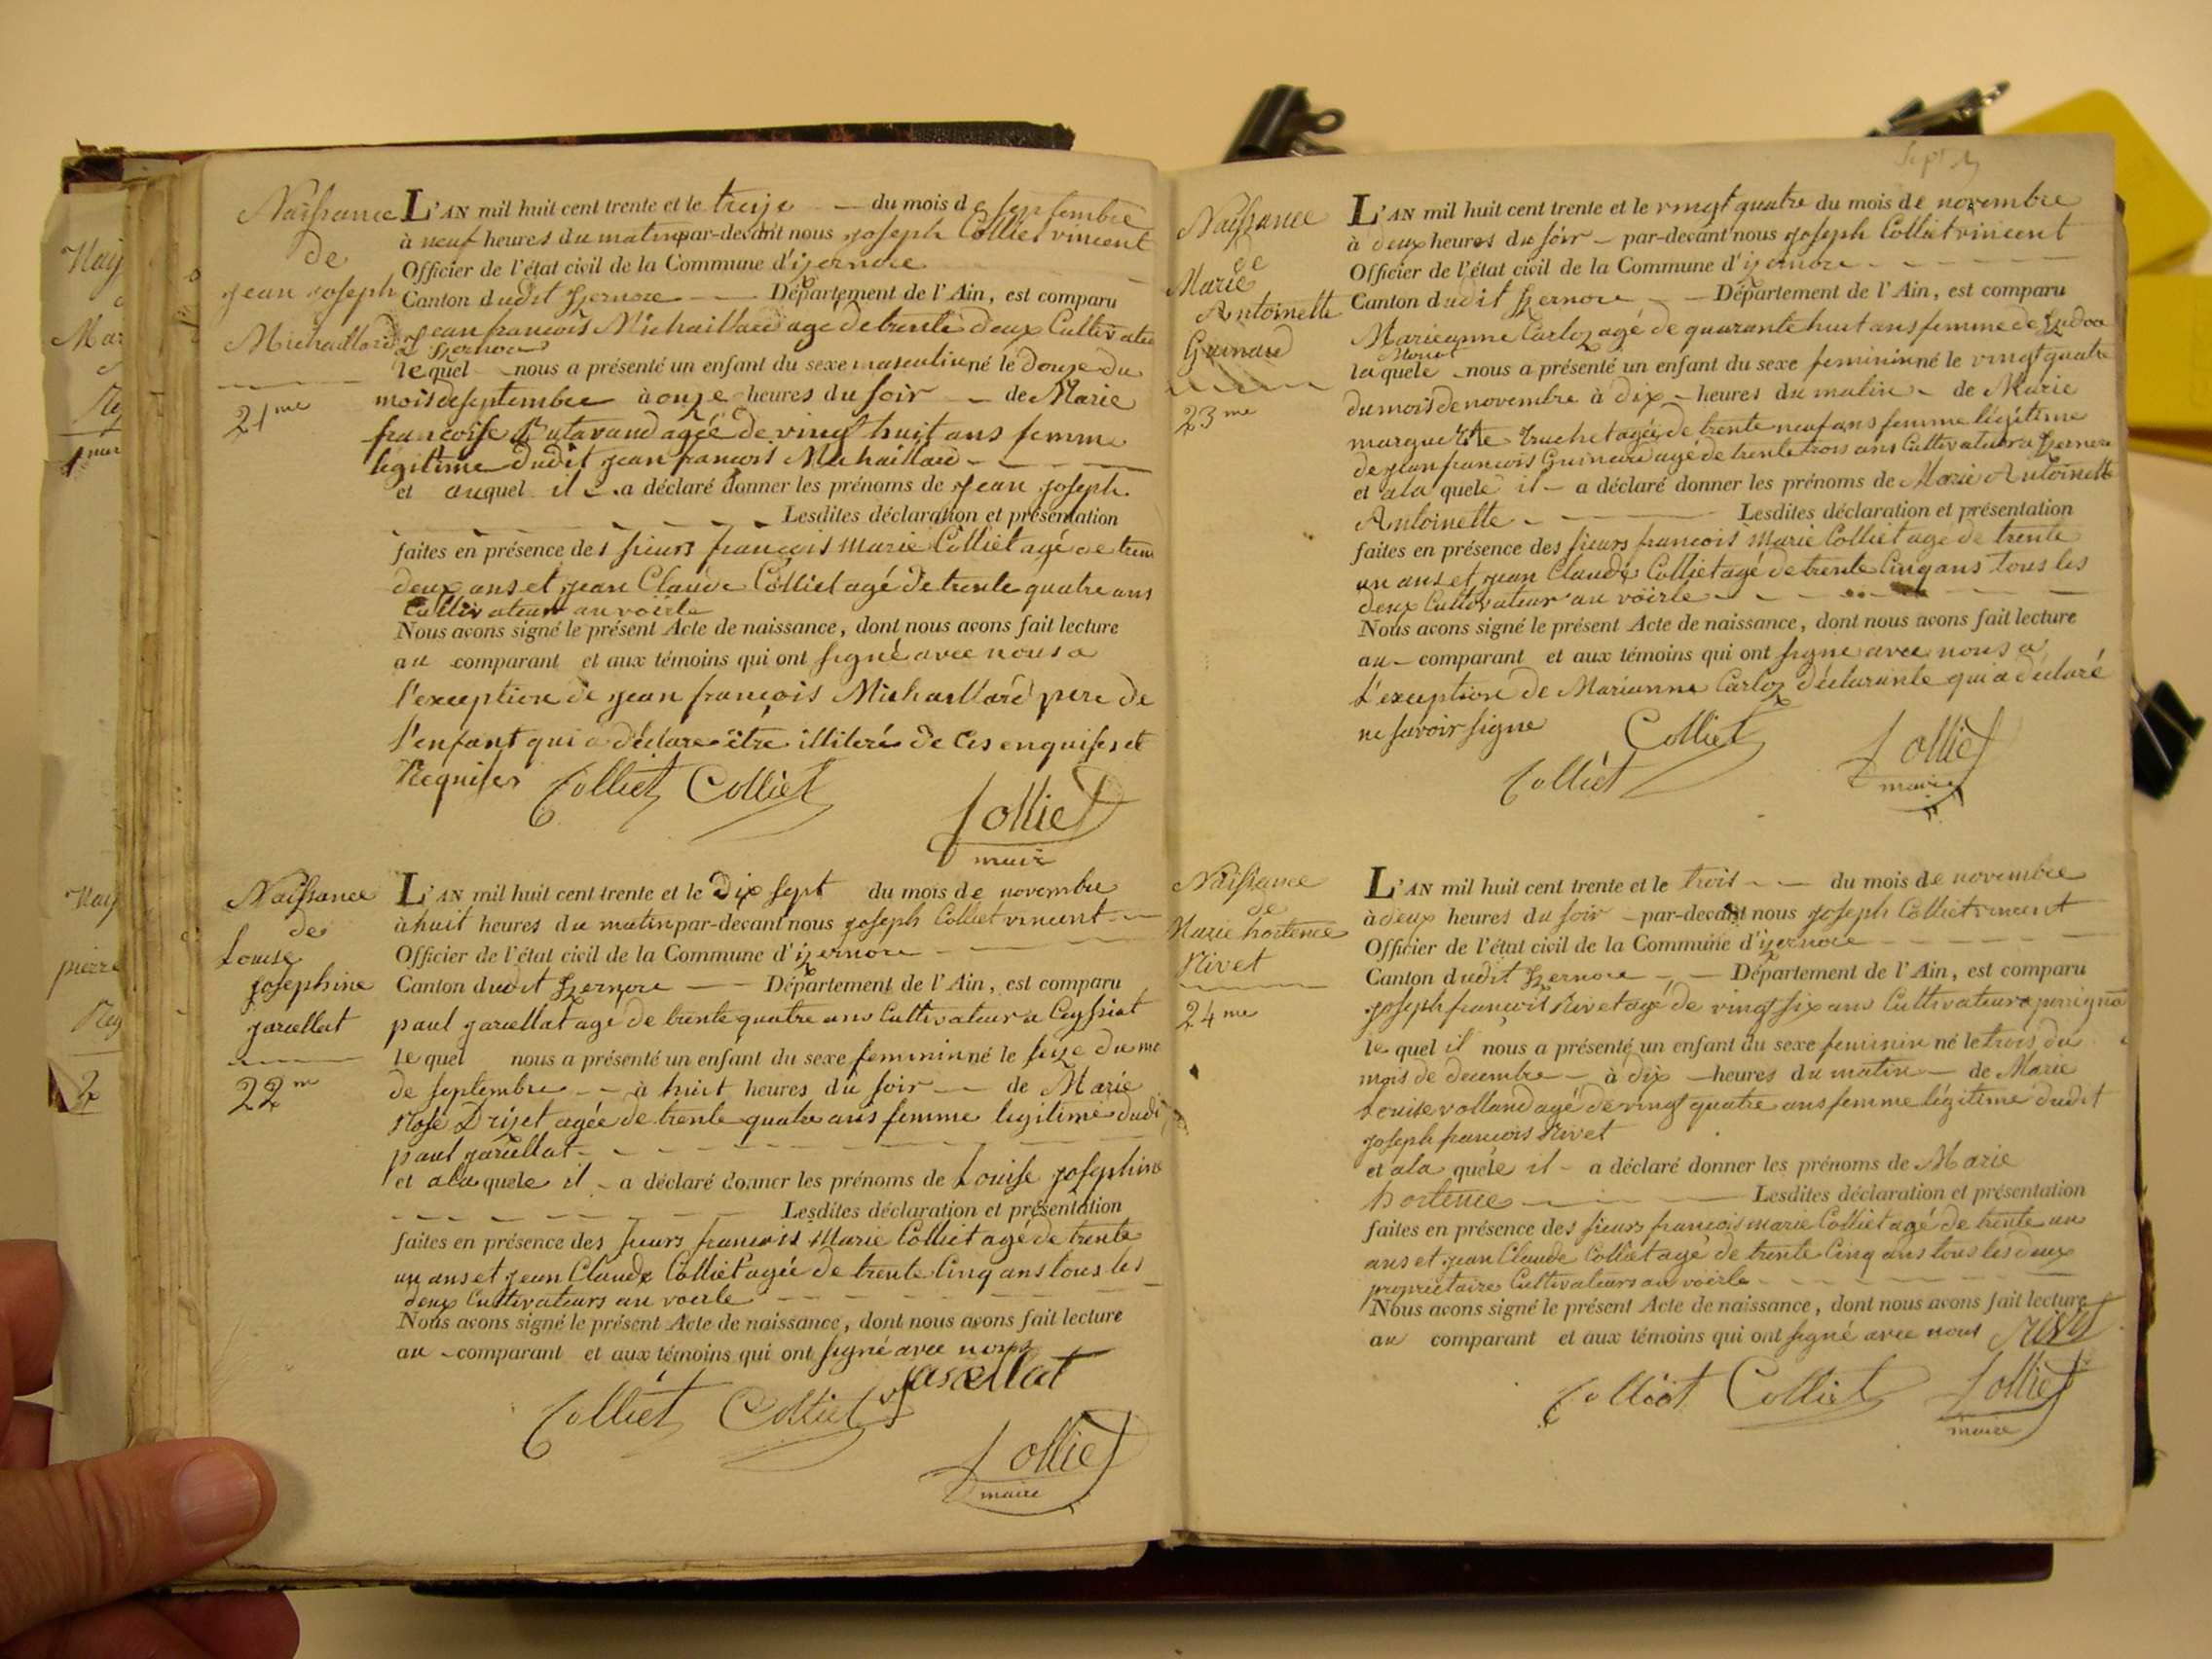 Naissance
de
Jean Joseph
Michaillard
21me
L'AN mil huit cent trente et le treize du mois de septembre
à neuf heures du matin par-devant nous joseph Colliet vincent
Officier de l'état civil de la Commune d'izernore
Canton dudit Izernore Département de l'Ain, est comparu
jean francois Michaillard agé de trente deux Cultivateur
a Izernore
lequel nous a présenté un enfant du sexe masculin né le douze du
mois de septembre à onze heures du soir de Marie
francoise agée de vingt huit ans femme
légitime dudit jean francois Michaillard
et auquel il a déclaré donner les prénoms de Jean Joseph
Lesdites déclaration et présentation
faites en présence des sieurs françois marie Colliet agé de trente
deux ans et jean Claude Colliet agé de trente quatre ans
Cultivateur au voërle
Nous avons signé le présent Acte de naissance, dont nous avons fait lecture
au comparant et aux témoins qui ont signé avec nous a
l'exception de jean françois Michaillard pere de
l'enfant qui a déclaré être illiteré de Ces enquises et
Requises Colliet Colliet
Colliet
maire
Naissance
de
Louise
josephine
jarcellat
22m
L'AN mil huit cent trente et le Dix sept du mois de novembre
à huit heures du matin par-devant nous joseph Colliet vincent
Officier de l'état civil de la Commune d'izernore
Canton dudit Izernore Département de l'Ain, est comparu
paul jarcellat agé de trente quatre ans Cultivateur a Ceyssiat
lequel nous a présenté un enfant du sexe feminin né le seize du mo
de septembre à huit heures du soir de Marie
Rose Drizet agée de trente quatre ans femme legitime dudit
paul jarcellat
et ala quele il a déclaré donner les prénoms de Louise josephine
Lesdites déclaration et présentation
faites en présence des sieurs francois Marie Colliet agé de trente
un ans et jean Claude Colliet agée de trente Cinq ans tous les
deux Cultivateurs au voerle
Nous avons signé le présent Acte de naissance, dont nous avons fait lecture
au comparant et aux témoins qui ont signé avec nous
Jarcellat
Colliet Colliet
Colliet
maire
Naissance
de
Marie
Antoinette
Guinard
23me
L'AN mil huit cent trente et le vingt quatre du mois de novembre
à deux heures du soir par-devant nous joseph Colliet vincent
Officier de l'état civil de la Commune d'izernore
Canton dudit Izernore Département de l'Ain, est comparu
Marieanne Carloz agé de quarante huit ans femme de
laquele nous a présenté un enfant du sexe feminin né le vingt quatre
du mois de novembre à dix heures du matin de Marie
marguerite truchet agée de trente neuf ans femme légitime
de jean francois Guinard agé de trente trois ans Cultivateur a Izernore
et ala quele il a déclaré donner les prénoms de Marie Antoinette
Antoinette Lesdites déclaration et présentation
faites en présence des sieurs francois Marie Colliet age de trente
un ans et jean Claude Colliet agé de trente Cinq ans tous les
deux Cultivateur au voërle
Nous avons signé le présent Acte de naissance, dont nous avons fait lecture
au comparant et aux témoins qui ont signe avec nous a
L'exception de Marianne Carloz déclarante qui a déclaré
ne savoir signe Colliet
Colliet
Colliet
maire
Naissance
de
Marie hortence
Nivet
24me
L'AN mil huit cent trente et le trois du mois de novembre
à deux heures du soir par-devant nous joseph Colliet vincent
Officier de l'état civil de la Commune d'izernore
Canton dudit Izernore Département de l'Ain, est comparu
joseph françois Nivet agé de vingt six ans Cultivateur a
lequel il nous a présenté un enfant du sexe feminin né le trois du
mois de decembre à dix heures du matin de Marie
Louise volland agé de vingt quatre ans femme légitime dudit
joseph francois Nivet
et ala quele il a déclaré donner les prénoms de Marie
hortence Lesdites déclaration et présentation
faites en présence des sieurs francois marie Colliet agé de trente un
ans et jean Claude Colliet agé de trente Cinq ans tous les deux
propriétaire Cultivateurs au voërle
Nous avons signé le présent Acte de naissance, dont nous avons fait lecture
au comparant et aux témoins qui ont signé avec nous Nivet
Colliet Colliet Colliet
maire